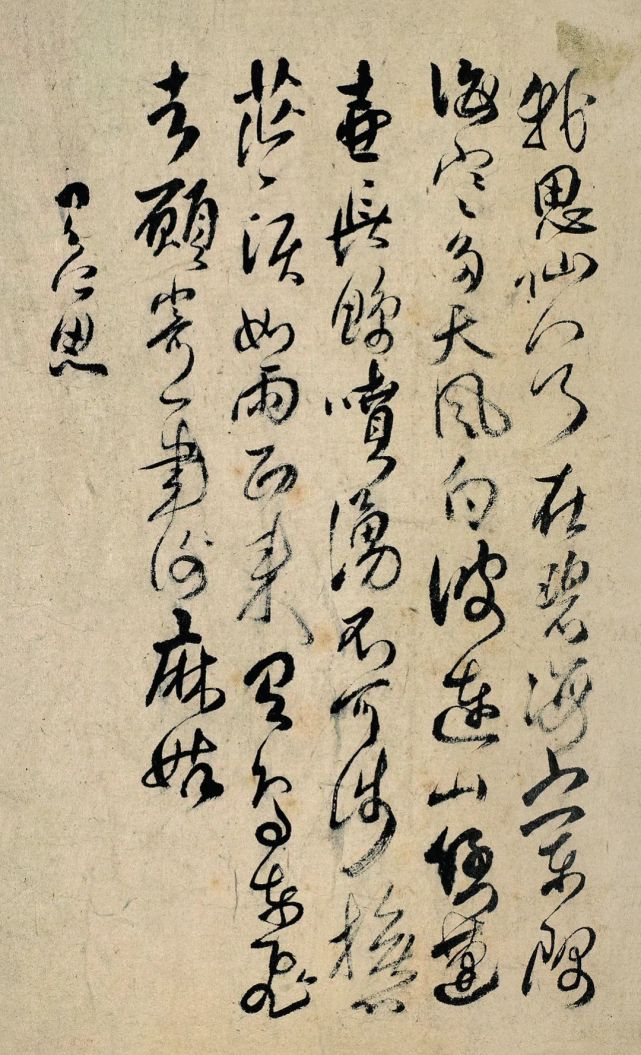 我思仙人乃在碧海之東隅
海寒多天風白波連山倒蓬
壺長鯨噴湧不可涉撫心
茫〻淚如雨西來青鳥東飛
去願寄一書謝麻姑
所思